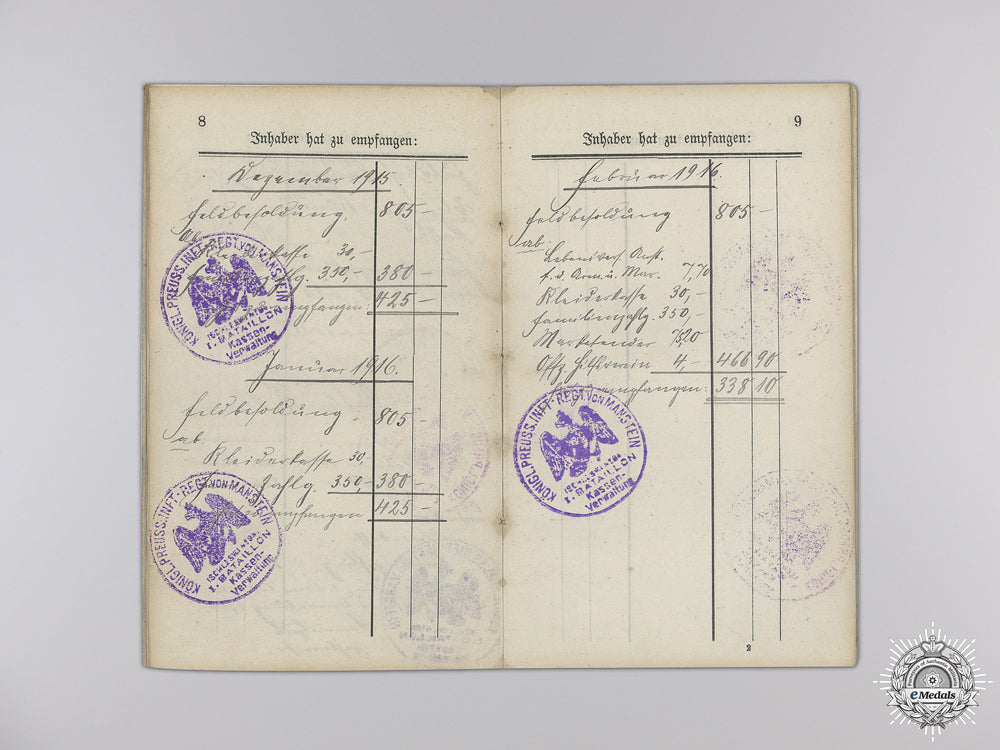 8
Inhaber hat zu empfangen:
Dezember 1915
Feldbesoldung. 805 –
Ab
Kleiderkasse 30,–
350,– 380 –
empfangen 425 –
KÖNIGL. PREUSS. INFT.-REGT. VON MANSTEIN
(SCHLESWIG) № 84
I. BATAILLON
Kassen-
Verwaltung
Januar 1916.
Feldbesoldung. 805 –
ab:
Kleiderkasse 30,
350,– 380 –
empfangen 425 –
KÖNIGL. PREUSS. INFT.-REGT. VON MANSTEIN
(SCHLESWIG) № 84
I. BATAILLON
Kassen-
Verwaltung
9
Inhaber hat zu empfangen:
Februar 1916.
Feldbesoldung 805 –
ab:
Lebensvers. Anst.
f. d. Arm. u. Mar. 7,70
Kleiderkasse 30,–
Familienzahlg. 350,–
Marketender 75,20
Offz. Hilfsverein 4,– 466 90
empfangen: 338 10
KÖNIGL. PREUSS. INFT.-REGT. VON MANSTEIN
(SCHLESWIG) № 84
I. BATAILLON
Kassen-
Verwaltung
2
eMedals